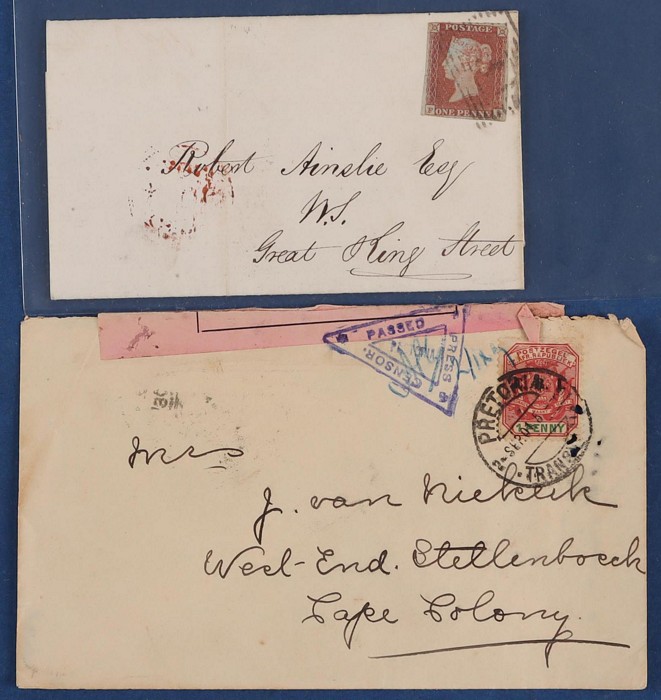 POSTAGE
ONE PENNY
Robert Ainslie Esq
W.S.
Great King Street
PASSED
PRESS
CENSOR
PRETORIA
TRANS
1 PENNY
Mrs
J. van Niekerk
West-End. Stellenbosch
Cape Colony.